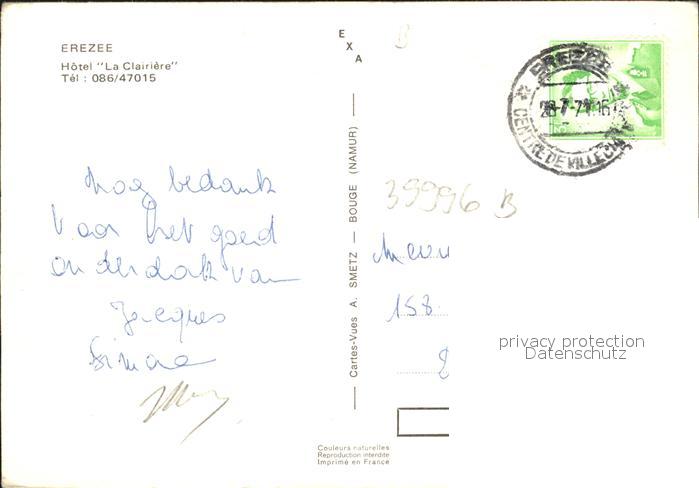 EREZEE
Hôtel "La Clairière"
Tél : 086/47015
EXA
B
EREZEE
28-7-71.16
CENTRE DE VILLEGIATURE
nog bedankt
Voor het goed
onderdak van
Jacques
Simone
Cartes-Vues A. SMETZ — BOUGE (NAMUR)
39996 B
158
privacy protection
Datenschutz
Couleurs naturelles
Reproduction interdite
Imprimé en France